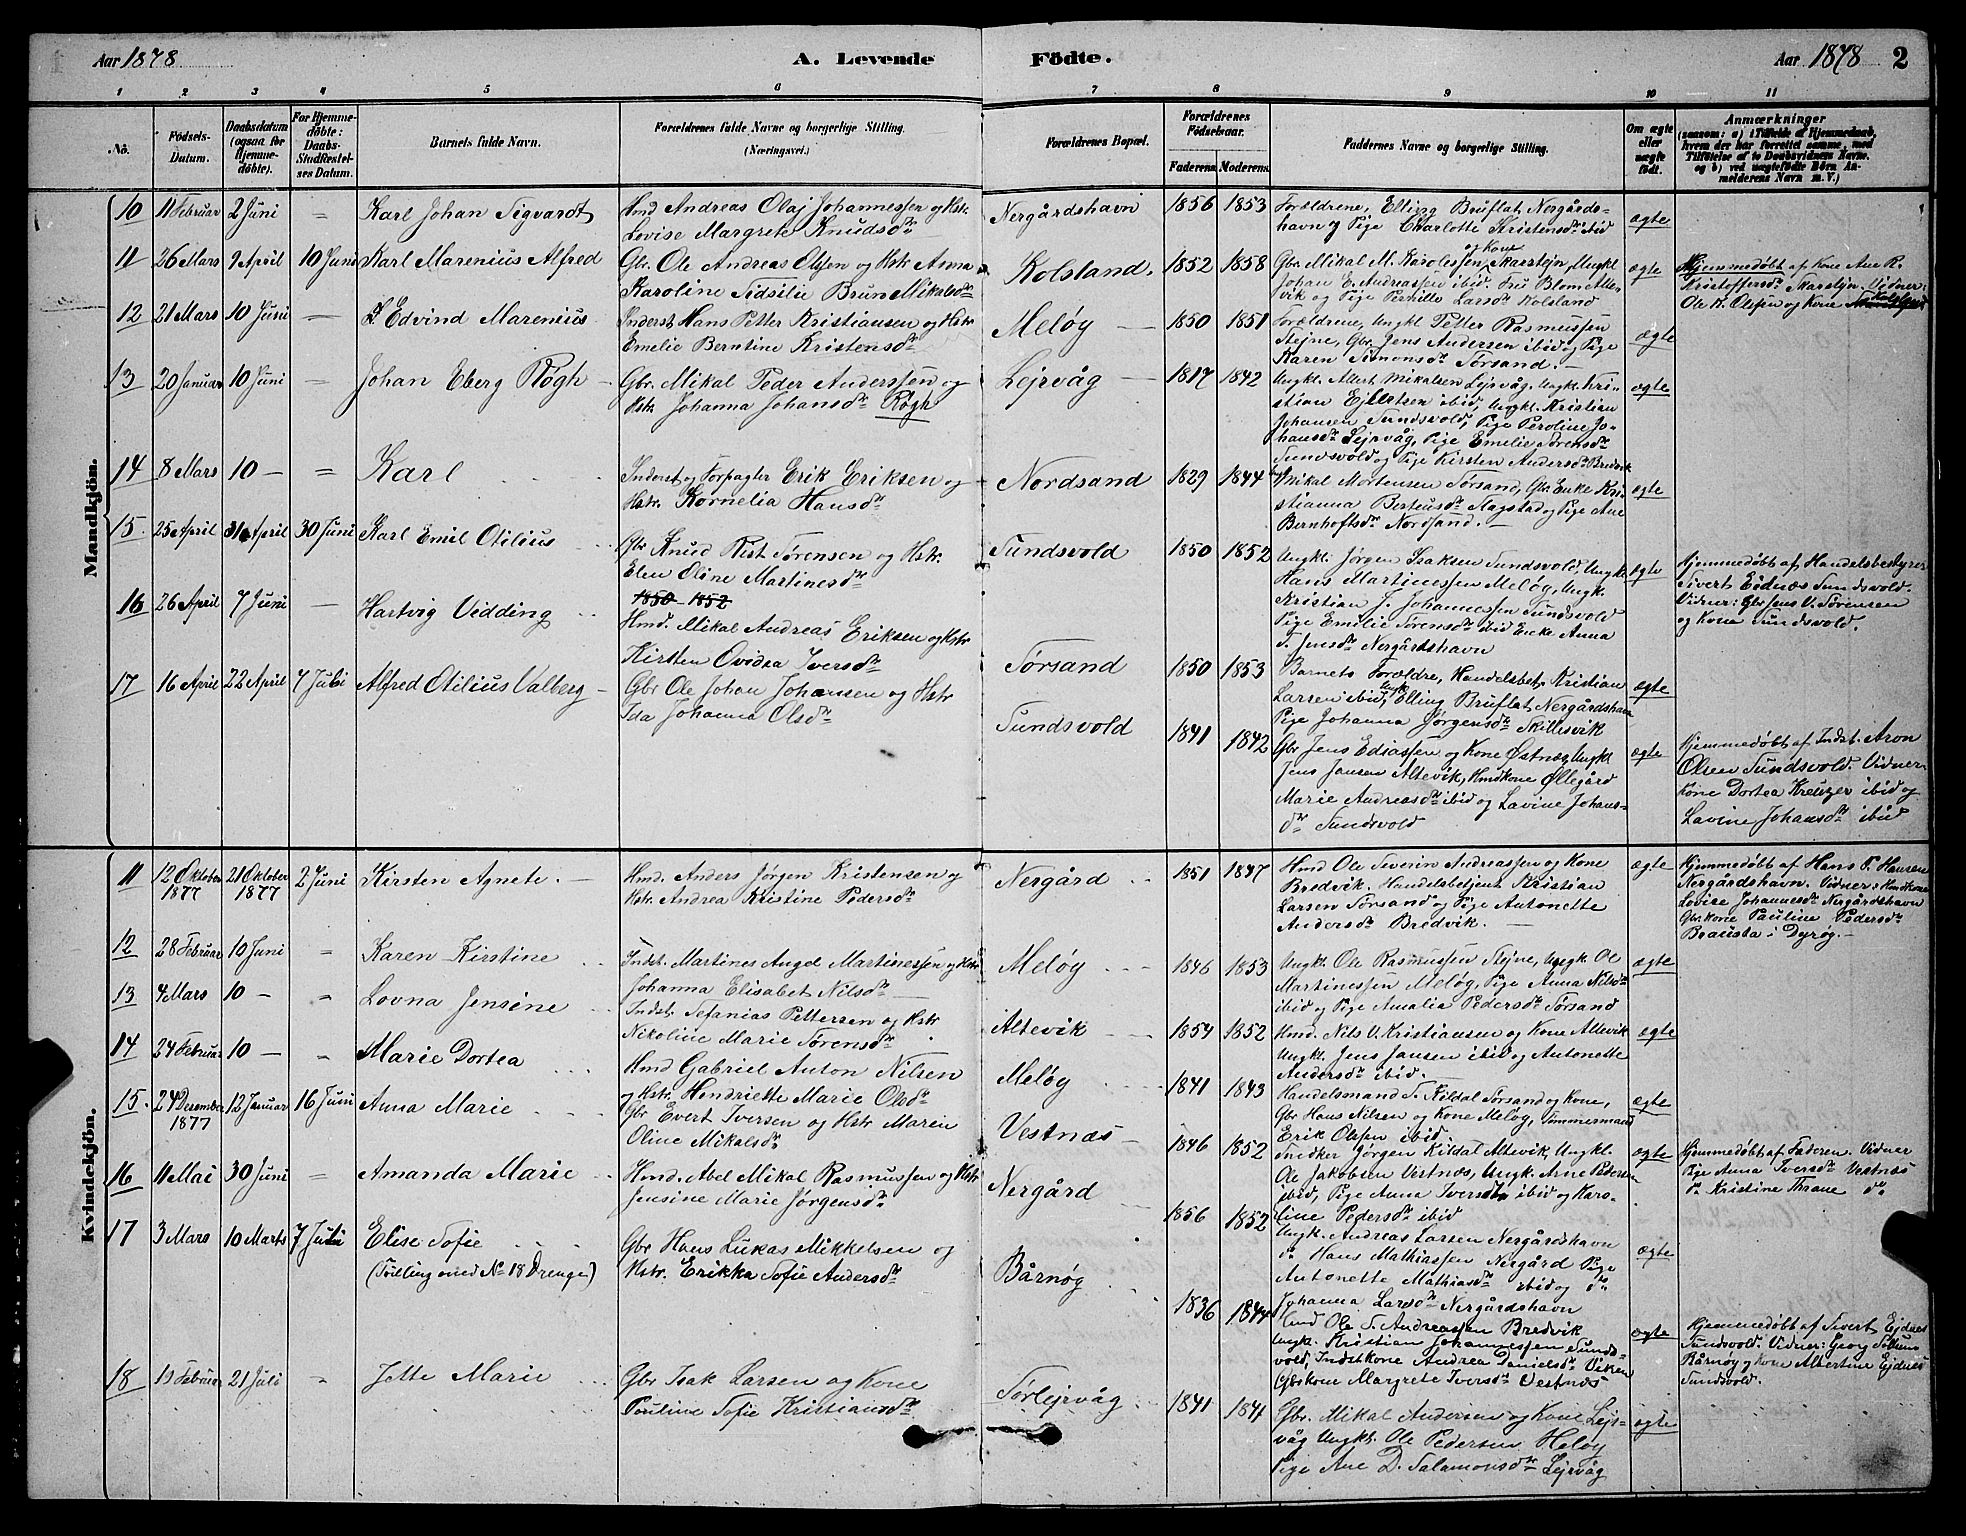 Aar 1878 A. Levende Födte. Aar 1878 2
1 2 3 4 5 6 7 8 9 10 11
No. Födsels-Datum. Daabsdatum (ogsaa for Hjemmedöbte). For Hjemmedöbte: Daabs-Stadfæstelses Datum. Barnets fulde Navn. Forældrenes fulde Navne og borgerlige Stilling. (Næringsvei.) Forældrenes Bopæl. Forældrenes Födselsaar. Faderens. Moderens. Faddernes Navne og borgerlige Stilling. Om ægte eller uægte födt. Anmærkninger
(saasom: a) i Tilfælde af Hjemmedaab, hvem der har forrettet samme, med Tilföielse af to Daabsvidners Navne. og b) ved uægtefödte Börn Anmelderens Navn m. V.)
Mandkjön.
10 11 Februar 2 Juni = Karl Johan Sigvardt
Hmd Andreas Olaj Johannessen og Hstr
Lovise Margrete Knudsdtr
Nergårdshavn 1856 1853
Forældrene, Elling Bruflat Nergårds-
havn og Pige Charlotte Kristensdtr ibid
ægte
11 26 Mars 9 April 10 Juni Karl Marenius Alfred
Gbr. Ole Andreas Olsen og Hstr Anna
Karoline Sidsilie Brun Mikalsdtr
Kolsland. 1852 1858
Gbr. Mikal M. Karolessen og Kone Skarstejn, Ungkl
Johan E. Andreassen ibid. Fru Blom Alte-
vik og Pige Pernille Larsdtr Kolsland
ægte
Hjemmedøbt af Kone Ane K.
Kristoffersdtr Skarstejn. Vidner:
Ole A. Olsen og Kone Kolsland
12 21 Mars 10 Juni = Edvind Marenius
Inderst Hans Petter Kristiansen og Hstr
Emelie Berntine Kristensdtr
Meløy 1850 1851
Forældrene, Ungkl Petter Rasmussen
Stejne, Gbr. Jens Andersen ibid og Pige
Karen Simonsdtr Tørsand.
ægte
13 20 Januar 10 Juni = Johan Eberg Røgh
Gbr. Mikal Peder Anderssen og
Hstr Johanna Johansdtr Røgh
Lejrvåg 1817 1842
Ungkl. Albert Mikalsen Lejrvåg, Ungkl. Kri-
stian Ejlertsen ibid, Ungkl. Kristian
Johansen Sundsvold, Pige Peroline Jo-
hansdtr Lejrvåg, Pige Emelie Sørensdtr
Sundsvold og Pige Kirsten Andersdtr Bredvik
ægte
14 8 Mars 10 — = Karl
Inderst og Forpagter Erik Eriksen og
Hstr. Kornelia Hansdtr
Nordsand 1829 1844
Mikal Mortensen Tørsand, Gbr. Enke Kri-
stianna Berteusdtr Flagstad og Pige Ane
Bernhoftsdtr Nordsand.
ægte
15. 25 April 31 April 30 Juni Karl Emil Otilius
Gbr Knud Rist Sørensen og Hstr.
Elen Oline Martinesdtr
1850-1852
Sundsvold 1850 1852
Ungkl. Jørgen Isaksen Sundsvold, Ungkl
Hans Martinessen Meløy, Ungk.
Kristian J. Johannessen Sundsvold
Pige Emilie Sørensdtr ibid Enke Anna
S. Jensdtr Nergårdshavn
ægte
Hjemmedøbt af Handelsbestyrer
Sivert Eidnæs Sundsvold.
Vidner: Gbr Jens V. Sørensen
og Kone Sundsvold.
16 26 April 7 Juni — Hartvig Vidding
Hmd. Mikal Andreas Eriksen og Hstr
Kirsten Ovidia Iversdtr
Tørsand 1850 1853
Barnets Forældre, Handelsbet. Kristian
Larsen ibid, Ungkl Elling Bruflat Nergårdshavn
Pige Johanna Jørgensdtr Skillesvik
ægte
17 16 April 22 April 7 Juli Alfred Otilius Valberg
Gbr Ole Johan Johansen og Hstr
Ida Johanna Olsdtr
Sundsvold 1841 1842
Gbr Jens Ediassen og Kone Østnæs, Ungkl
Jens Jansen Altevik, Hmdkone Øllegård
Marie Andreasdtr ibid og Lavine Johans-
dtr Sundsvold
ægte
Hjemmedøbt af Indst. Aron
Olsen Sundsvold. Vidner:
Kone Dortea Kreutzer ibid og
Lavine Johansdtr ibid
Kvindekjön.
11 12 Oktober 1877 21 Oktober 1877 2 Juni Kirsten Agnete.
Hmd. Anders Jørgen Kristensen og
Hstr. Andrea Kristine Pedersdtr
Nergård 1851 1847
Hmd Ole Severin Andreassen og Kone
Bredvik. Handelsbetjent Kristian
Larsen Tørsand og Pige Antonette
Andersdtr Bredvik.
ægte
Hjemmedøbt af Hans P. Hansen
Nergårdshavn. Vidner: Hmdkone
Lovise Johannesdtr Nergårdshavn
Gbr.Kone Pauline Pedersdtr
Brausta i Dyrøy.
12 28 Februar 10 Juni = Karen Kirstine
Indst. Martines Angel Martinessen og Hstr
Johanna Elisabet Nilsdtr
Meløy 1846 1853
Ungkl. Ole Rasmussen Stejne, Ungkl. Ole
Martinessen Meløy, Pige Anna Nilsdtr
ibid og Pige Amalia Pedersdtr Tørsand
ægte
13 4 Mars 10 — " Lovna Jensine
Indst. Stefanias Pettersen og Hstr
Nikoline Marie Sørensdtr
Altevik 1854 1852
Hmd. Nils V. Kristiansen og Kone Altevik
Ungkl. Jens Jansen ibid og Antonette
Andersdtr ibid.
ægte
14 24 Februar 10 — " Marie Dortea
Hmd Gabriel Anton Nilsen
og Hstr. Hendriette Marie Olsdtr
Meløy 1841 1843
Handelsmand S. Kildal Tørsand og Kone,
Gbr Hans Nilsen og Kone Meløy, Tømmermand
Erik Olsen ibid.
ægte
15. 24 Desember 1877 12 Januar 16 Juni Anna Marie
Gbr Evert Iversen og Hstr Maren
Oline Mikalsdtr
Vestnæs 1846 1852
Snidker Jørgen Kildal Altevik, Ungkl.
Ole Jakobsen Vestnæs, Ungk. Arne Pedersen
ibid, Pige Anna Iversdtr ibid og Karo-
line Pedersdtr ibid
ægte
Hjemmedøbt af Faderen. Vidner
Pige Anna Iversdtr Vestnæs
do Kristine Thrane do
16 11 Mai 30 Juni = Amanda Marie
Hmd. Abel Mikal Rasmussen og Hstr
Jensine Marie Jørgensdtr
Nergård 1856 1852
Ungk. Andreas Larsen Nergårdshavn
do Hans Mathiassen Nergård Pige
Antonette Mathiasdtr ibid og do
Johanna Larsdtr Nergårdshavn
ægte
17 3 Mars 10 Marts 7 Juli Elise Sofie
(Tvilling med No 18 Drenge)
Gbr Hans Lukas Mikkelsen og
Hstr. Erikka Sofie Andersdtr
Bårnøy 1836 1844
Hmd Ole S. Andreassen Bredvik
Ungk. Kristian Johannessen Sunds-
vold, Indstkone Andrea Danielsdtr Viken
Gbrkone Margrete Iversdtr Vestnæs
ægte
Hjemmedøbt af Sivert Ejdnes
Sundsvold. Vidner: Georg
Bårnøy og Kone Albertine Ejdnes
Sundsvold.
18 19 Februar 21 Juli " Jette Marie
Gbr Isak Larsen og Kone
Pauline Sofie Kristiansdtr
Tørlejrvåg 1841 1841
Gbr. Mikal Andersen og Kone Lejr-
våg Ungkl. Ole Pedersen Meløy
Pige Ane D. Salamonsdtr Lejrvåg
ægte